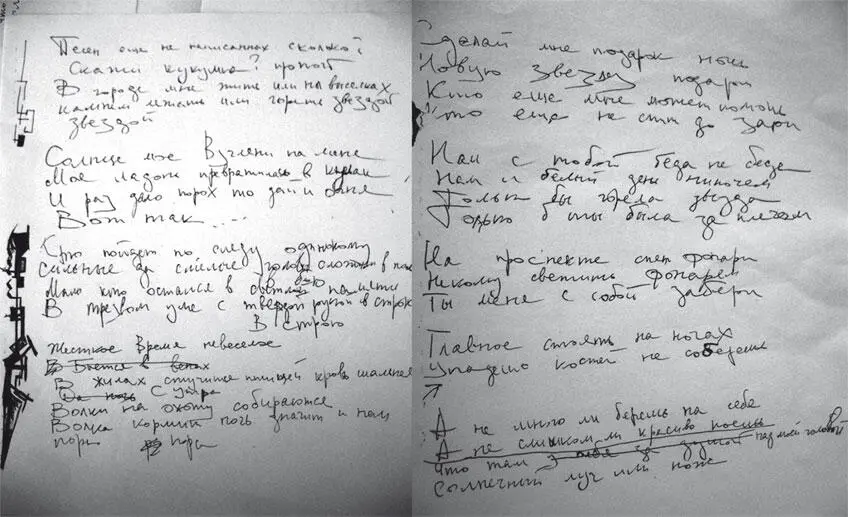 Песен еще не написанных сколько?
Скажи кукушка? пропой
В городе мне жить или на выселках
камнем лежать или гореть звездой
звездой
Солнце мое Взгляни на меня
Моя ладонь превратилась в кулак
И раз дало порох то дай и огня
Вот так....
Кто пойдет по следу одинокому
сильные да смелые головы сложили в поле
Мало кто остался в светлой памяти
В трезвом уме с твердой рукой в строю
В Строю
Жесткое Время невеселое
В Бьется в венах
В жилах стучится кровь шальная
Да ночь с утра
Волки на охоту собираются
Волка кормит ночь значит и нам
пора пора
Сделай мне подарок ночь
Новую звезду подари
Кто еще мне может помочь
Кто еще не спит до зари
Нам с тобой беда не беда
Нам и белый день нипочем
Только бы горела звезда
Только б ты была за плечом
На проспекте спят фонари
Некому светить фонарям
Ты меня с собой забери
Главное стоять на ногах
Упадешь костей не соберешь
А не много ли берешь на себя
А не слишком ли красиво поешь
Что там у тебя за душой над моей головой
Солнечный луч или нож